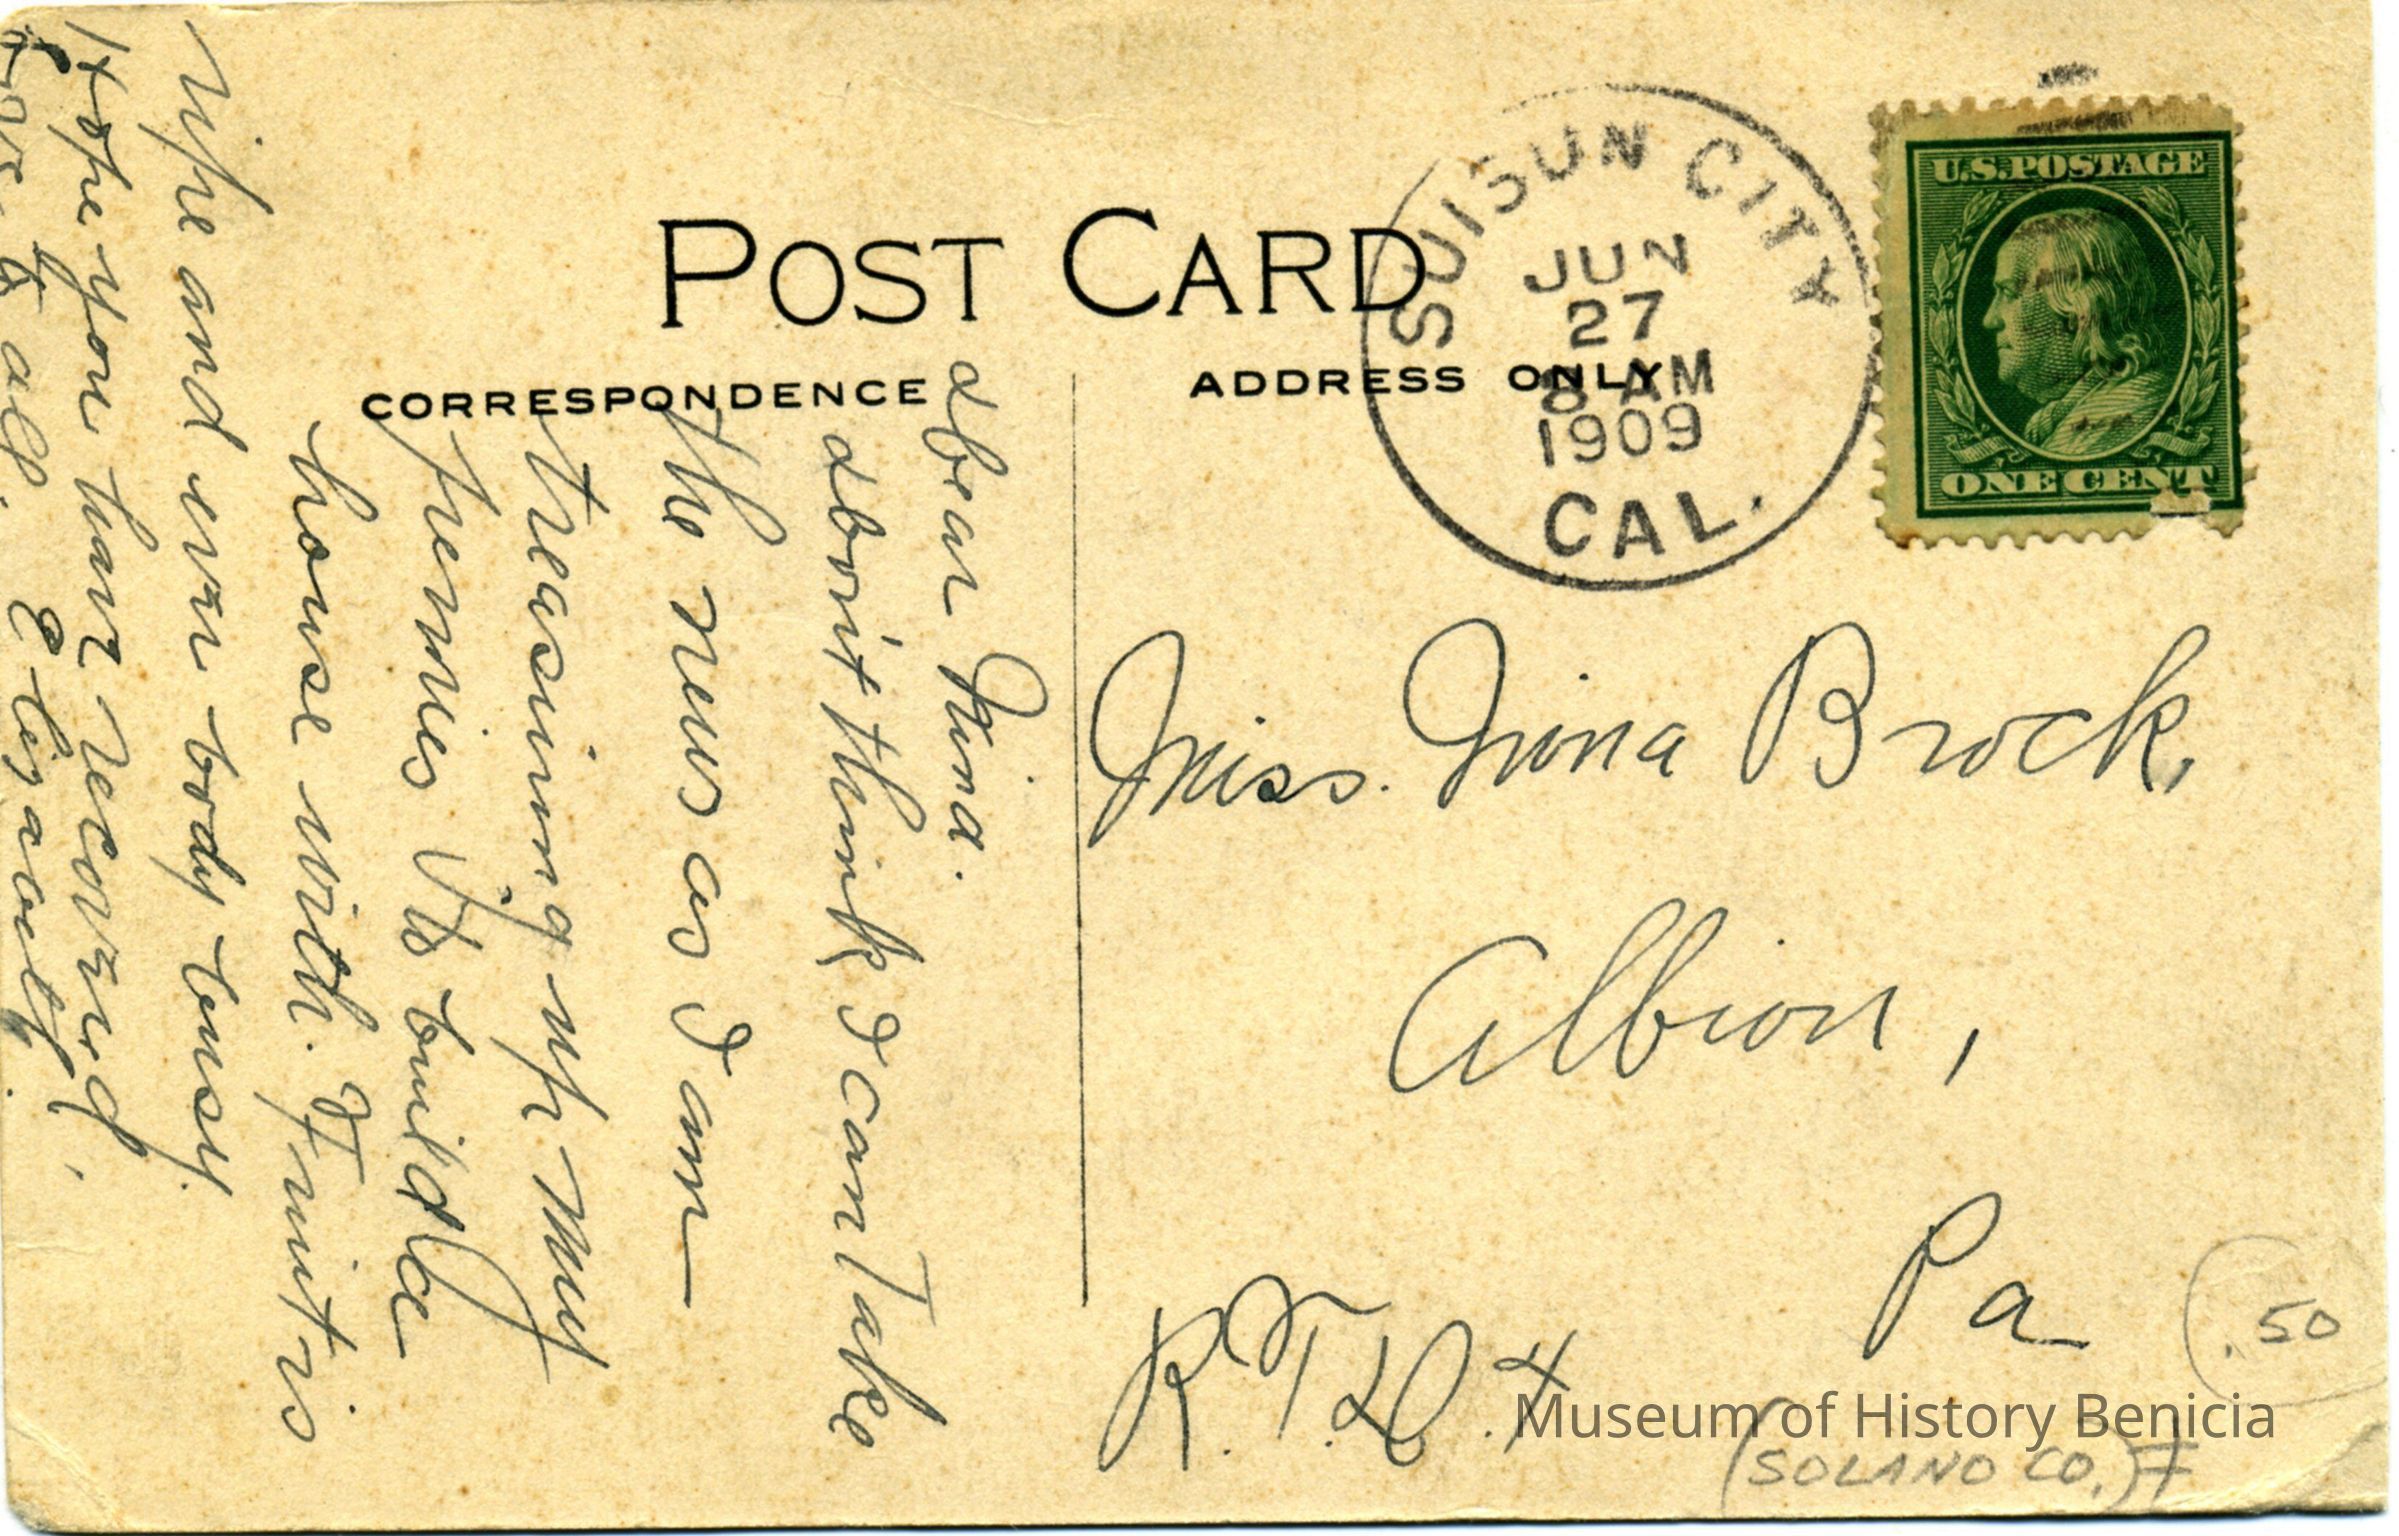 POST CARD
CORRESPONDENCE
ADDRESS ONLY
SUISUN CITY
JUN
27
8 AM
1909
CAL.
U.S. POSTAGE
ONE CENT
Dear Nina.
don't think I can Take
the news as I am
treasuring up my
pennies to build a
house with. Fruit is
ripe and every body busy.
Hope you have recovered.
Love to all.
Miss. Nina Brock,
Albion,
Pa
R.F.D. 4
.50
Museum of History Benicia
(SOLANO CO.) 7